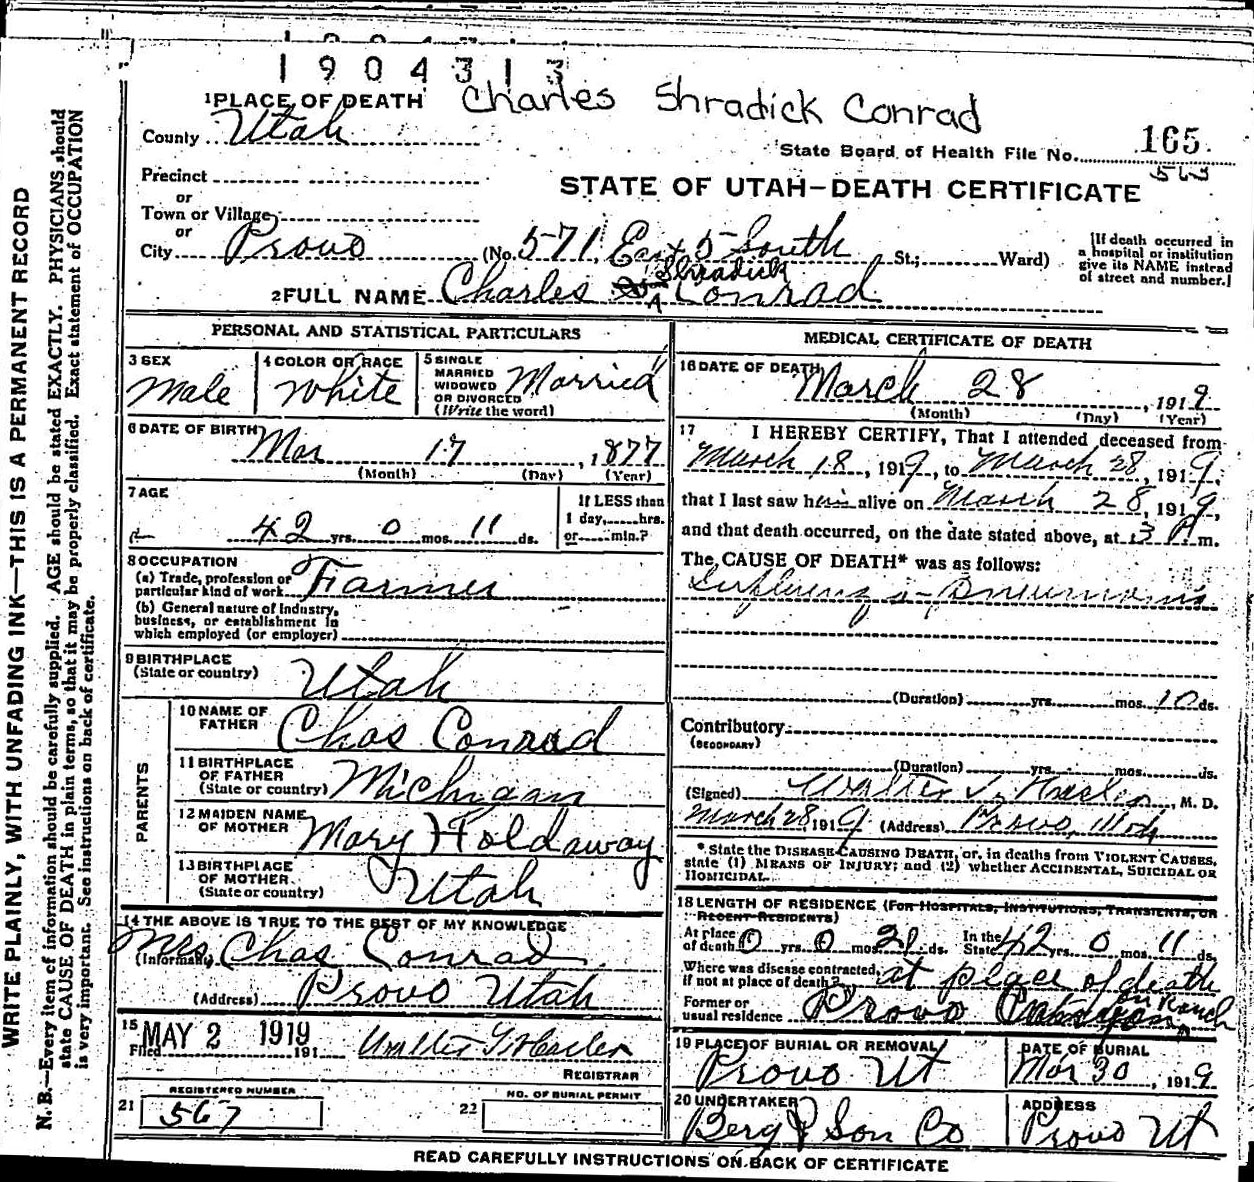 1904313
1 PLACE OF DEATH Charles Shradick Conrad
County Utah
165
State Board of Health File No.
Precinct
or
STATE OF UTAH—DEATH CERTIFICATE
Town or Village
or
City Provo (No. 571 East 5 South St.; Ward)
[If death occurred in a hospital or institution give its NAME instead of street and number.]
Shradick
2 FULL NAME Charles Conrad
PERSONAL AND STATISTICAL PARTICULARS
3 SEX
Male
4 COLOR OR RACE
White
5 SINGLE
MARRIED
WIDOWED
OR DIVORCED
(Write the word)
Married
6 DATE OF BIRTH
Mar 17, 1877
(Month) (Day) (Year)
7 AGE
42 yrs. 0 mos. 11 ds.
If LESS than
1 day,.....hrs.
or.....min.?
8 OCCUPATION
(a) Trade, profession or
particular kind of work Farmer
(b) General nature of Industry,
business, or establishment in
which employed (or employer)
9 BIRTHPLACE
(State or country)
Utah
PARENTS
10 NAME OF
FATHER
Chas Conrad
11 BIRTHPLACE
OF FATHER
(State or country) Michigan
12 MAIDEN NAME
OF MOTHER
Mary Holdaway
13 BIRTHPLACE
OF MOTHER
(State or country)
Utah
14 THE ABOVE IS TRUE TO THE BEST OF MY KNOWLEDGE
(Informant) Mrs. Chas Conrad
(Address) Provo Utah
15
Filed MAY 2 1919 191
REGISTRAR
REGISTERED NUMBER
21 567
NO. OF BURIAL PERMIT
22
MEDICAL CERTIFICATE OF DEATH
16 DATE OF DEATH
March 28, 1919
(Month) (Day) (Year)
17 I HEREBY CERTIFY, That I attended deceased from
March 18, 1919, to March 28, 1919,
that I last saw him alive on March 28, 1919,
and that death occurred, on the date stated above, at 3 P m.
The CAUSE OF DEATH* was as follows:
Influenza-Pneumonia
(Duration) yrs. mos. 10 ds.
Contributory
(SECONDARY)
(Duration) yrs. mos. ds.
(Signed) Walter T. Hasler, M. D.
March 28 1919 (Address) Provo, Utah
*State the DISEASE CAUSING DEATH, or, in deaths from VIOLENT CAUSES,
state (1) MEANS OF INJURY; and (2) whether ACCIDENTAL, SUICIDAL OR
HOMICIDAL.
18 LENGTH OF RESIDENCE (FOR HOSPITALS, INSTITUTIONS, TRANSIENTS, OR
RECENT RESIDENTS)
At place
of death 0 yrs. 0 mos. ds. In the State 42 yrs. 0 mos. 11 ds.
Where was disease contracted,
if not at place of death? at place of death
Former or
usual residence Provo on Ranch
19 PLACE OF BURIAL OR REMOVAL
Provo Ut
DATE OF BURIAL
Mar 30, 1919
20 UNDERTAKER
Berg & Son Co
ADDRESS
Provo Ut
READ CAREFULLY INSTRUCTIONS ON BACK OF CERTIFICATE
WRITE PLAINLY, WITH UNFADING INK—THIS IS A PERMANENT RECORD
N. B.—Every item of information should be carefully supplied. AGE should be stated EXACTLY. PHYSICIANS should
state CAUSE OF DEATH in plain terms, so that it may be properly classified. Exact statement of OCCUPATION
is very important. See instructions on back of certificate.